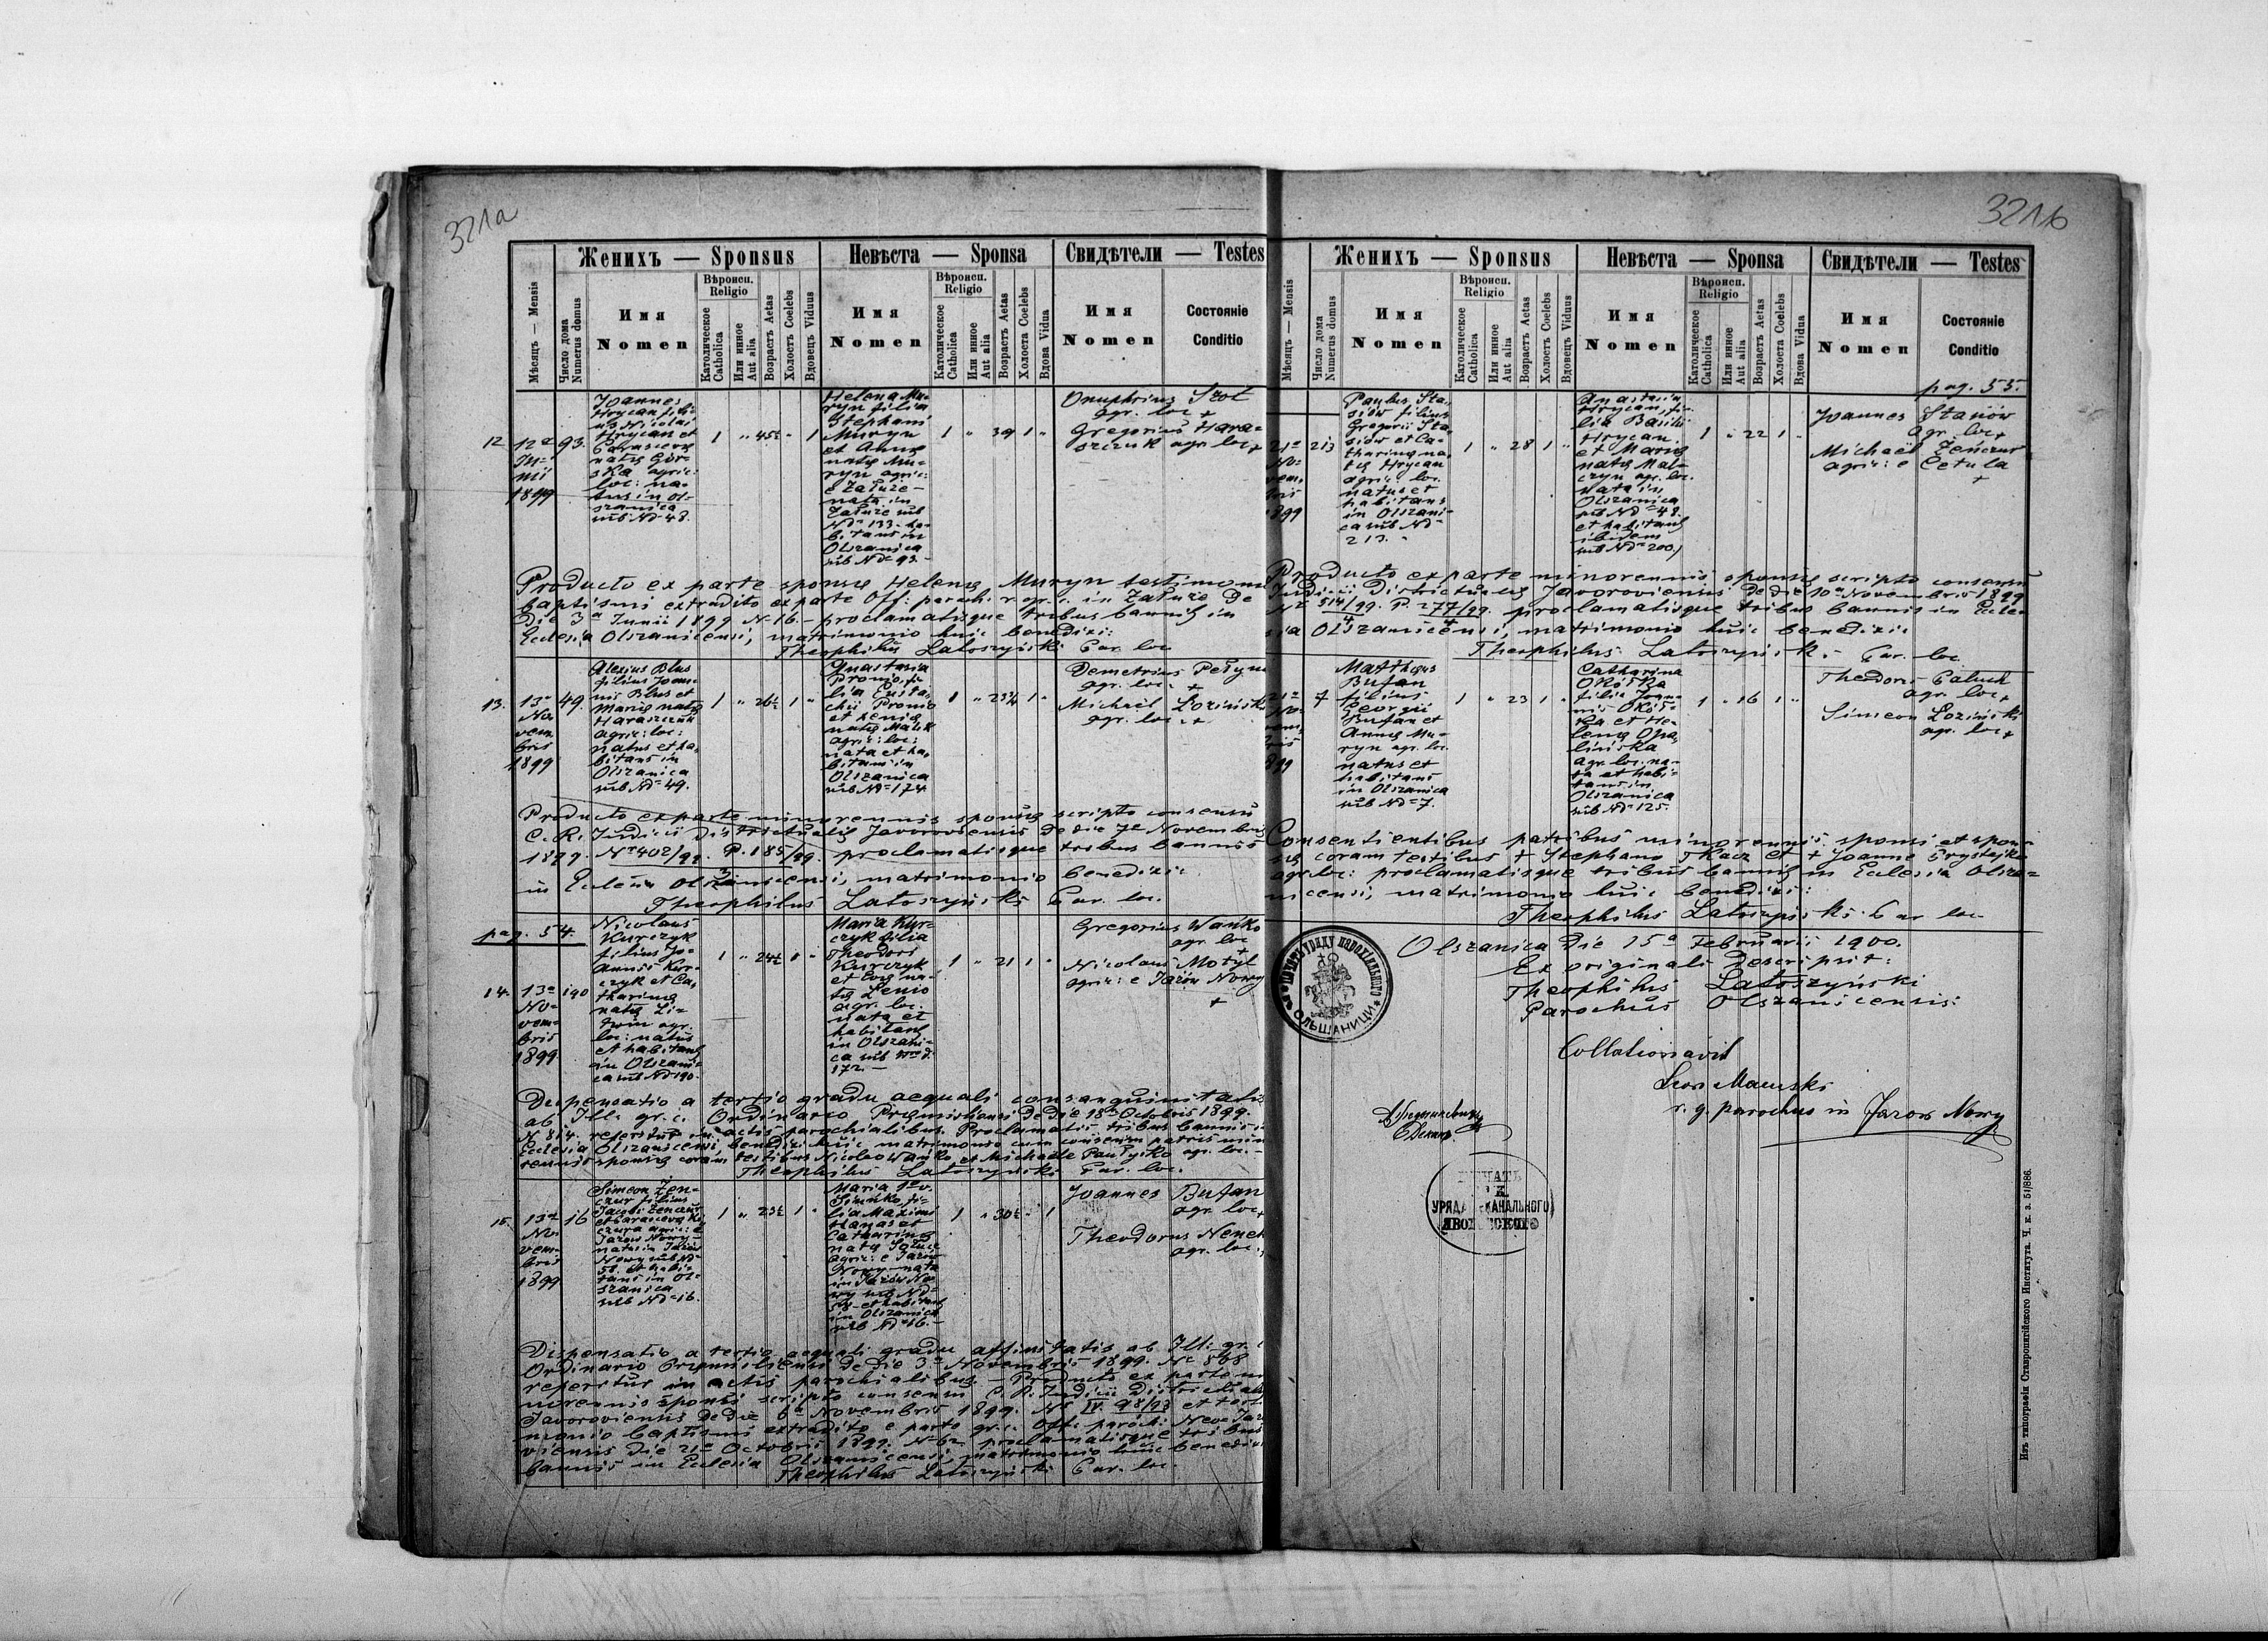 321a
Женихъ — Sponsus
Невѣста — Sponsa
Свидѣтели — Testes
Мѣсяцъ — Mensis
Число дома
Numerus domus
Имя
Nomen
Вѣроисп.
Religio
Католическое
Catholica
Или иное
Aut alia
Возрастъ Aetas
Холостъ Coelebs
Вдовецъ Viduus
Имя
Nomen
Вѣроисп.
Religio
Католическое
Catholica
Или иное
Aut alia
Возрастъ Aetas
Холоста Coelebs
Вдова Vidua
Имя
Nomen
Состояніе
Conditio
12
12a
Ju-
nii
1899
93.
Joannes
Hrycan fili-
us Nicolai
Hrycan et
natus in Ol-
szanica
sub Nd 48.
1 " 45½ " 1
Helena Mu-
ryn filia
Stephani
Muryn
et Anna
nata Mu-
ryn agric:
e Załuże
nata in
Załuże sub
Nd 133 ha-
bitans in
Olszanica
sub Nd 93.
1 " 39 1 "
Onuphrius Szot
agr. loc +
Gregorius Hara-
szczuk agr loc +
Producto ex parte sponsæ Helenæ Muryn testimoni
baptismi extradito ex parte Off: paroch. r. gr. c. in Załuże de
die 3a Junii 1899 N 16. – proclamatisque tribus bannis in
Ecclesia Olszanicensi, matrimonio huic benedixi:
Theophilus Latoszyński Par. loc
13.
13a
No-
vem-
bris
1899
49.
Alexius Blus
filius Joan-
nis Blus et
Mariæ natæ
Haraszczuk
agric: loc:
natus et ha-
bitans in
Olszanica
sub Nd 49.
1 " 26½ 1 "
Anastasia
Pronio, fi-
lia Eusta-
chii Pronio
et Xeniæ
natæ Masik
agric: loc:
nata et ha-
bitans in
Olszanica
sub Nd 174
1 " 23¼ 1 "
Demetrius Petyn
agr. loc. +
Michael Łozińsk
agr. loc. +
Producto ex parte minorennis sponsæ scripto consensu
C. R. Judicii districtualis Javoroviensis de die 7a Novembris
1899. Nr 402/99. P. 185/99. proclamatisque tribus bannis
in Ecclesia Olszanicensi, matrimonio benedixi:
Theophilus Latoszyński Par. loc.
pag. 54.
14.
13a
No-
vem-
bris
1899
190
Nicolaus
Kurczyk
filius Jo-
annis Kur-
czyk et Ca-
tharinæ
natæ Li-
twin agr.
loc: natus
et habitans
in Olszani-
ca sub Nd 190.
1 " 24½ 1 "
Maria Kur-
czyk filia
Theodori
Kurczyk
et Evæ na-
tæ Senio
agr. loc.
nata et
habitans
in Olszani-
ca sub Nro d.
172. –
1 " 21 1 "
Gregorius Wańko
agr. loc
+
Nicolaus Motyl
agric: e Jazów Nowy
+
Dispensatio a tertio gradu aequali consanguinitatis
ab Ill. gr. c. Ordinario Premisliensi de die 18a Octobris 1899.
N 814. reperitur in actis parochialibus. Proclamatis tribus bannis in
Ecclesia Olszanicensi, benedixi huic matrimonio cum consensu patris mino
rennis sponsæ coram testibus Nicolao Wańko et Michaele Pautyśko agr. loc. –
Theophilus Latoszyński Par. loc.
15.
13a
No-
vem-
bris
1899
16
Simeon Żen-
czur filius
Jacobi Żenczur
agric: e
Jazów Nowy
natus in Jazów
Nowy sub Nd
58. et habi-
tans in Ol-
szanica
sub Nd 16.
1 " 23½ 1 "
Maria 1o v.
Simńko, fi-
lia Maximi
Hanas et
Catharinæ
natæ
agric: e Jazów
Nowy – nata
in Jazów No-
wy sub Nd
et habitans
in Olszanica
sub Nd 16. –
1 " 30½ " 1
Joannes Bufan
agr. loc +
Theodorus Nenek
agr. loc.
Dispensatio a tertio aequali gradu affinitatis ab Ill: gr. c
Ordinario Premisliensi de die 3a Novembris 1899. N 868
reperitur in actis parochialibus. – Producto ex parte mi
norennis sponsi scripto consensu C. R. Judicii Districtuali
Javoroviensis de die 6a Novembris 1899. Nr IV. 98/93 et testi
monio baptismi extradito e parte gr. c. Off. paroch: Nevo Jazo
viensis die 21a Octobris 1899. N 62 proclamatisque tribus
bannis in Ecclesia Olszanicensi, matrimonio huic benedixi
Theophilus Latoszyński Par. loc.
321b
Женихъ — Sponsus
Невѣста — Sponsa
Свидѣтели — Testes
Мѣсяцъ — Mensis
Число дома
Numerus domus
Имя
Nomen
Вѣроисп.
Religio
Католическое
Catholica
Или иное
Aut alia
Возрастъ Aetas
Холостъ Coelebs
Вдовецъ Viduus
Имя
Nomen
Вѣроисп.
Religio
Католическое
Catholica
Или иное
Aut alia
Возрастъ Aetas
Холоста Coelebs
Вдова Vidua
Имя
Nomen
Состояніе
Conditio
pag. 55.
21a
No-
vem-
bris
1899
213
Paulus Sta-
siów filius
Gregorii Sta-
siów et Ca-
tharinæ na-
tæ Hrycan
agric. loc.
natus et
habitans
in Olszani-
ca sub Nd
213. "
1 " 28 1 "
Anastasia
Hrycan, fi-
lia Basilii
Hrycan
et Mariæ
natæ Mal-
czyn agr. loc.
nata in
Olszanica
sub Nd 48.
et habitans
ibidem
sub Nd 200.
1 " 22 1 "
Joannes Stasiów
agr. loc +
Michael Żenczur
agric: e Cetula
+
Producto ex parte minorennis sponsæ scripto consensu
Judicii Districtualis Javoroviensis de die 10a Novembris 1899
Nr 514/99. P. 277/99. proclamatisque tribus bannis in Eccle-
sia Olszanicensi, matrimonio huic benedixi:
Theophilus Latoszyński. Par. loc
21a
7
Matthæus
Bufan
filius
Georgii
Bufan et
Annæ Mu-
ryn agr. loc.
natus et
habitans
in Olszanica
sub Nd 7.
1 " 23 1 "
Catharina
Okóśka
filia Joan-
nis Okóś-
ka et He-
lenæ Opa-
lińska
agr. loc. na-
ta et habi-
tans in
Olszanica
sub Nd 125.
1 " 16 1 "
Theodor Paluch
agr. loc +
Simeon Łoziński
agr. loc +
Consentientibus patribus minorennis sponsi et spon-
sæ coram testibus + Stephano Tkacz et + Joanne Hrystejko
agr. loc: proclamatisque tribus bannis in Ecclesia Olsza-
nicensi, matrimonio huic benedixi:
Theophilus Latoszyński. Par loc.
Olszanica die 15a Februarii 1900.
Ex originali descripsit:
Theophilus Latoszyński
Parochus Olszanicensis:
ОЛЬШАНИЦИ
Collationavit
r. g. parochus in Jazow Nowy
ПЕЧАТЬ
УРЯДА ДЕКАНАЛЬНОГО
Изъ типографіи Ставропигійского Института. Ч. к. з. 51/886.